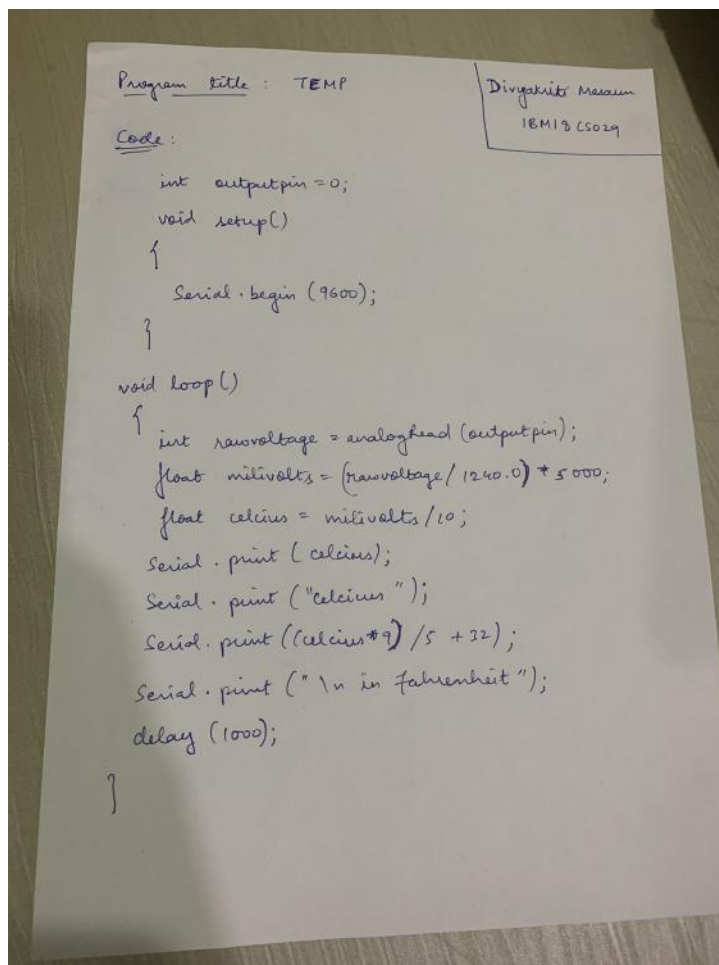 Program title : TEMP
Divyakriti
1BM18CS029
Code :
int outputpin = 0;
void setup()
{
Serial.begin (9600);
}
void loop()
{
int rawvoltage = analogRead (outputpin);
float milivolts = (rawvoltage / 1240.0) * 5000;
float celcius = milivolts /10;
Serial.print ( celcius);
Serial.print ("celcius ");
Serial.print ((celcius*9) /5 +32);
Serial.print (" \n in Fahrenheit ");
delay (1000);
}